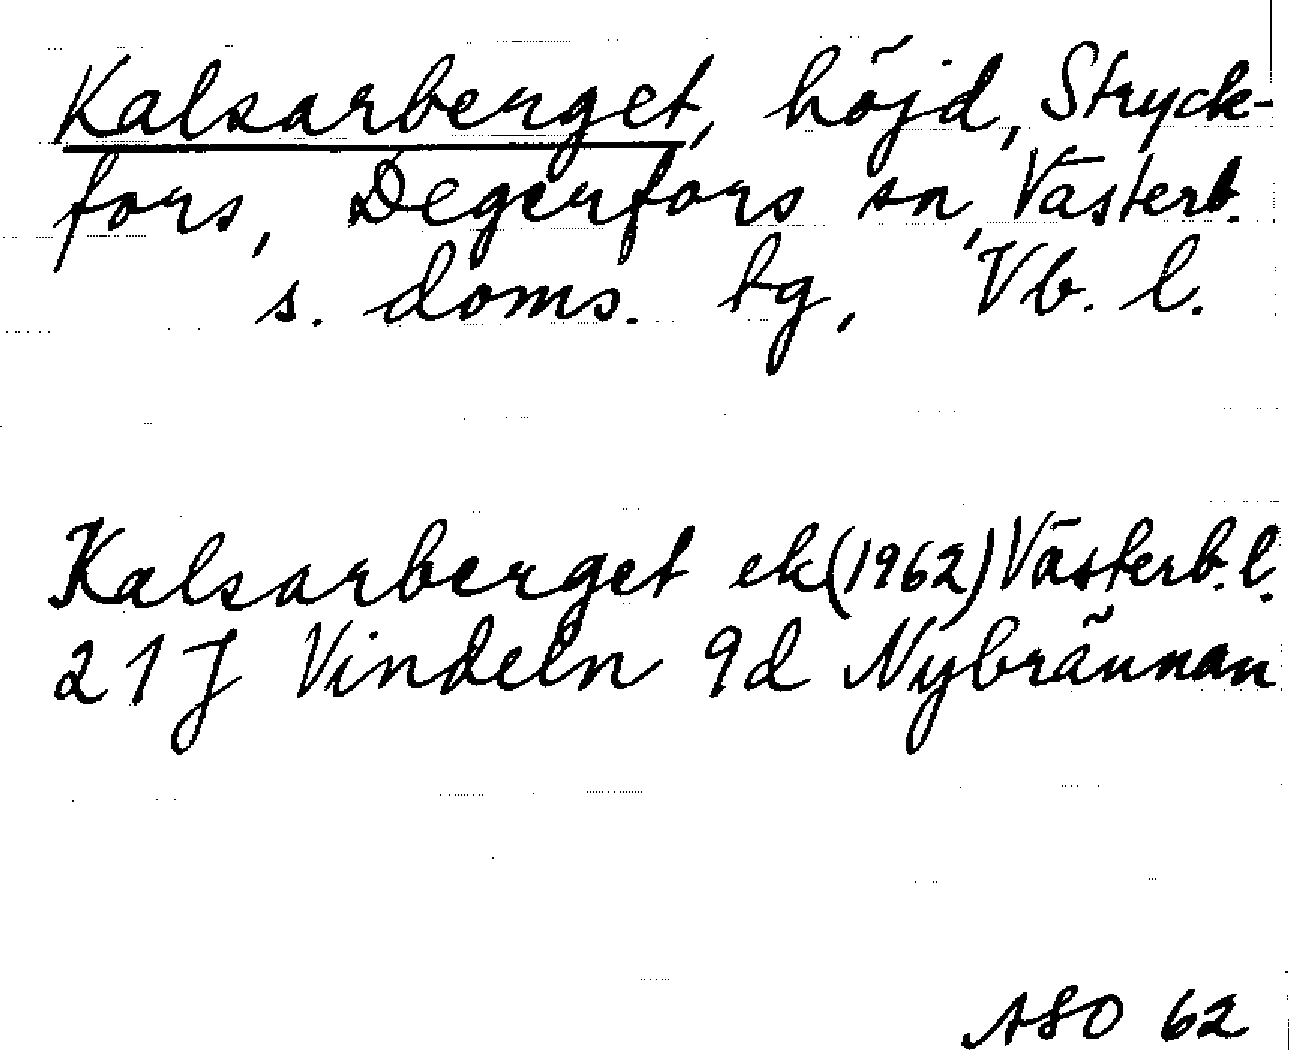 Kalsarberget, höjd, Stryck-
fors, Degerfors sn, Västerb.
s. doms. tg, Vb. l.
Kalsarberget ek (1962) Västerb. l.
21 J Vindeln 9d Nybrännan
ASO 62